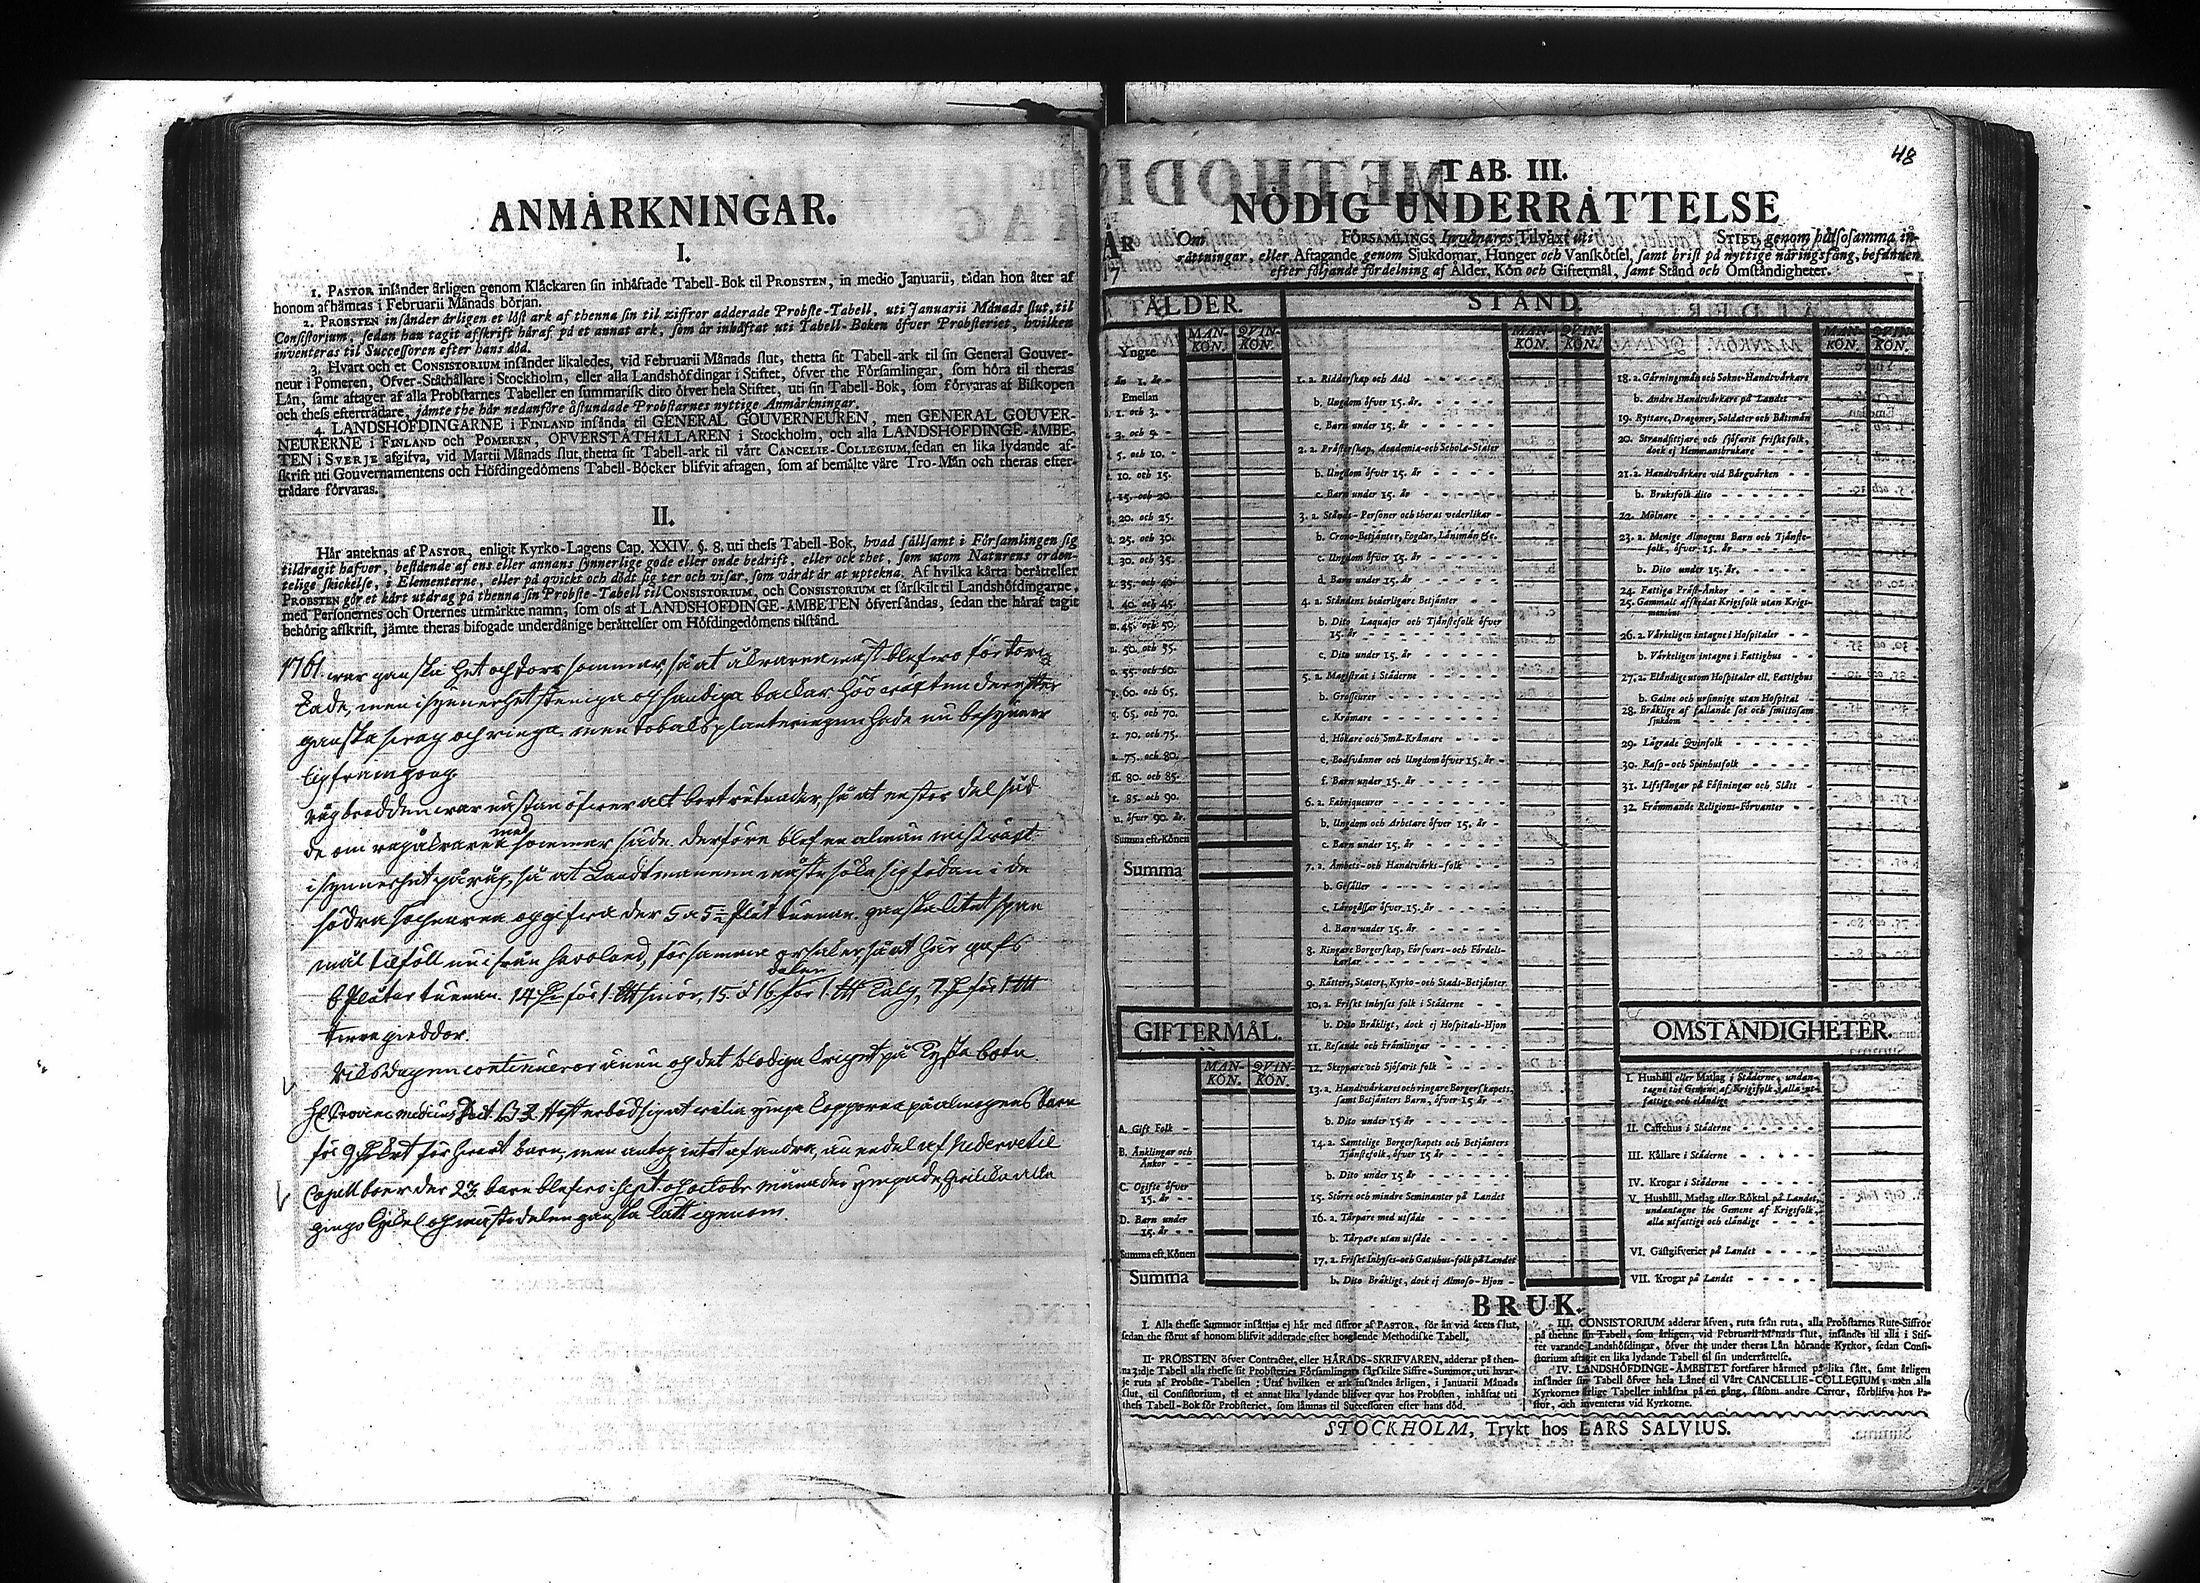 ANMÄRKNINGAR.
I.
1. PASTOR insänder årligen genom Klåckaren sin inhäftade Tabell-Bok til PROBSTEN, in medio Januarii, tädan hon åter af
honom afhämtas i Februarii Månads början.
2. PROBSTEN insänder årligen et löst ark af thenna sin til ziffror adderade Probste-Tabell, uti Januarii Månads slut, til
Consistorium, sedan han tagit afskrift häraf på et annat ark, som är inhäftat uti Tabell-Boken öfver Probsteriet, hvilken
inventeras til Successoren efter hans död.
3. Hvart och et CONSISTORIUM insänder likaledes, vid Februarii Månads slut, thetta sit Tabell-ark til sin General Gouver-
neur i Pomeren, Öfver-Ståthållare i Stockholm, eller alla Landshöfdingar i Stiftet, öfver the Församlingar, som höra til theras
Län, samt aftager af alla Probstarnes Tabeller en summarisk dito öfver hela Stiftet, uti sin Tabell-Bok, som förvaras af Biskopen
och thess efterträdare, jämte the här nedanföre åstundade Probstarnes nyttige Anmärkningar.
4. LANDSHÖFDINGARNE i FINLAND insända til GENERAL GOUVERNEUREN, men GENERAL GOUVER-
NEURERNE i FINLAND och POMEREN, ÖFVERSTÅTHÅLLAREN i Stockholm, och alla LANDSHÖFDINGE-ÄMBE-
TEN i SVERJE afgifva, vid Martii Månads slut, thetta sit Tabell-ark til vårt CANCELIE-COLLEGIUM, sedan en lika lydande af-
skrift uti Gouvernamentens och Höfdingedömens Tabell-Böcker blifvit aftagen, som af bemälte våre Tro-Män och theras efter-
trädare förvaras.
II.
Här anteknas af PASTOR, enligit Kyrko-Lagens Cap. XXIV. §. 8. uti thess Tabell-Bok, hvad sällsamt i Församlingen sig
tildragit hafver, bestående af ens eller annans synnerlige gode eller onde bedrift, eller ock thet, som utom Naturens orden-
telige skickelse, i Elementerne, eller på qvickt och dödt sig ter och visar, som värdt är at uptekna. Af hvilka kårta berättelser
PROBSTEN gör et kårt utdrag på thenna sin Probste-Tabell til CONSISTORIUM, och CONSISTORIUM et särskilt til Landshöfdingarne,
med Personernes och Orternes utmärkte namn, som oss af LANDSHÖFDINGE-ÄMBETEN öfversändas, sedan the häraf tagit
behörig afskrift, jämte theras bifogade underdånige berättelser om Höfdingedömens tilstånd.
1761. war ganska het och torr sommar, så at åkrarna mäst blefwo förtor-
kade, men i synnerhet steniga och sandiga backar
ganska och ringa men tobaksplanteringen hade nu besynner
lig framgång.
Rågbrodden war nästan öfwer alt så at en stor del
de om rågåkrarna med sommar säde. Derföre blef en almän misswäxt
i synnerhet på råg, så at Landtmannen måste söka sig födan i de
södra socknarna och gifwa der 5 a 5½ Plåt tunnan. ganska litet span
mål tilföll nu ifrån samma orsaker så at här gafs
6 Plåtar tunnan. 14 för 1 smör, 15 á 16 daler för 1 Talg, 7 för 1
torra gäddor.
Riksdagen continuerar ännu och det blodiga kriget på Tyska botn.
H. Provinc medicus erbödt sig at wilja ympa kopporna på almogens barn
för 9 för hwart barn, men antogs intet af andra, än en del af Nedervetil
Capell boer der 23 barn blefwo i Sept. och Octobr. månader ympade, hwilka alla
gingo och mästedelen ganska lätt igenom.
48
TAB. III.
NÖDIG UNDERRÄTTELSE
ÅR
17
Om FÖRSAMLINGS Invånares Tilväxt uti STIFT, genom hälsosamma in-
rättningar, eller Aftagande genom Sjukdomar, Hunger och Vanskötsel, samt brist på nyttige näringsfång, befunnen
efter följande fördelning af Ålder, Kön och Giftermål, samt Stånd och Omständigheter.
ÅLDER.
MAN-KÖN. QVIN-KÖN.
Yngre
än 1. år
Emellan
1. och 3.
3. och 5.
5. och 10.
10. och 15.
15. och 20.
20. och 25.
25. och 30.
30. och 35.
35. och 40.
40. och 45.
45. och 50.
50. och 55.
55. och 60.
60. och 65.
65. och 70.
70. och 75.
75. och 80.
80. och 85.
85. och 90.
öfver 90. år.
Summa eft. Könen
Summa
GIFTERMÅL.
MAN-KÖN. QVIN-KÖN.
A. Gift Folk
B. Änklingar och
Änkor
C. Ogifte öfver
15. år
D. Barn under
15. år
Summa eft. Könen
Summa
STÅND.
MAN-KÖN. QVIN-KÖN.
1. a. Ridderskap och Adel
b. Ungdom öfver 15. år.
c. Barn under 15. år
2. a. Prästerskap, Academia- och Schola-Stater
b. Ungdom öfver 15. år
c. Barn under 15. år
3. a. Stånds-Personer och theras vederlikar
b. Crono-Betjänter, Fogdar, Länsmän &c.
c. Ungdom öfver 15. år
d. Barn under 15. år
4. a. Ståndens hederligare Betjänter
b. Dito Laquajer och Tjänstefolk öfver
15. år
c. Dito under 15. år
5. a. Magistrat i Städerne
b. Grosseurer
c. Krämare
d. Hökare och Små-Krämare
e. Bodsvänner och Ungdom öfver 15. år
f. Barn under 15. år
6. a. Fabriqueurer
b. Ungdom och Arbetare öfver 15. år
c. Barn under 15. år
7. a. Ämbets- och Handtvärks-folk
b. Gesäller
c. Lärogåssar öfver 15. år
d. Barn under 15. år
8. Ringare Borgerskap, Försvars- och Fördels-
karlar
9. Rätters, Staters, Kyrko- och Stads-Betjänter
10. a. Friskt inhyses folk i Städerne
b. Dito Bräkligt, dock ej Hospitals-Hjon
11. Resande och Främlingar
12. Skeppare och Sjöfarit folk
13. a. Handtvärkares och ringare Borgerskapets,
samt Betjänters Barn, öfver 15. år
b. Dito under 15 år
14. a. Samtelige Borgerskapets och Betjänters
Tjänstefolk, öfver 15. år
b. Dito under 15. år
15. Större och mindre Seminanter på Landet
16. a. Tårpare med utsäde
b. Tårpare utan utsäde
17. a. Friskt Inhyses- och Gatuhus-folk på Landet
b. Dito Bräkligt, dock ej Almoso-Hjon
MAN-KÖN. QVIN-KÖN.
18. a. Gärningsmän och Sokne-Handtvärkare
b. Andre Handtvärkare på Landet
19. Ryttare, Dragoner, Soldater och Båtsmän
20. Strandsittjare och sjöfarit friskt folk,
dock ej Hemmansbrukare
21. a. Handtvärkare vid Bärgvärken
b. Bruksfolk dito
22. Mölnare
23. a. Menige Almogens Barn och Tjänste-
folk, öfver 15. år
b. Dito under 15. år.
24. Fattiga Präst-Änkor
25. Gammalt afskedat Krigsfolk utan Krigs-
manshus
26. a. Värkeligen intagne i Hospitaler
b. Värkeligen intagne i Fattighus
27. a. Eländige utom Hospitaler ell. Fattighus
b. Galne och ursinnige utan Hospital
28. Bräklige af fallande sot och smittosam
sjukdom
29. Lägrade Qvinfolk
30. Rasp- och Spinhusfolk
31. Lifsfångar på Fästningar och Slått
32. Främmande Religions-Förvanter
OMSTÄNDIGHETER.
I. Hushåll eller Matlag i Städerne, undan-
tagne the Gemene af Krigsfolk, alla ut-
fattige och eländige
II. Caffehus i Städerne
III. Källare i Städerne
IV. Krogar i Städerne
V. Hushåll, Matlag eller Röktal på Landet,
undantagne the Gemene af Krigsfolk,
alla utfattige och eländige
VI. Gästgifverier på Landet
VII. Krogar på Landet
BRUK.
I. Alla thesse Summor insättjas ej här med siffror af PASTOR, för än vid årets slut,
sedan the förut af honom blifvit adderade efter hosgående Methodiske Tabell.
II. PROBSTEN öfver Contractet, eller HÄRADS-SKRIFVAREN, adderar på then-
na 3:dje Tabell alla thesse sit Probsteries Församlingars särskilte Siffre-Summor, uti hvar-
je ruta af Probste-Tabellen: Utaf hvilken et ark insändes årligen, i Januarii Månads
slut, til Consistorium, så et annat lika lydande blifver qvar hos Probsten, inhäftat uti
thess Tabell-Bok för Probsteriet, som lämnas til Successoren efter hans död.
III. CONSISTORIUM adderar äfven, ruta från ruta, alla Probstarnes Rute-Siffror
på thenne sin Tabell, som årligen, vid Februarii Månads slut, insändes til alla i Stif-
tet varande Landshöfdingar, öfver the under theras Län hörande Kyrkor, sedan Consi-
storium aftagit en lika lydande Tabell til sin underrättelse.
IV. LANDSHÖFDINGE-ÄMBETET fortfarer härmed på lika sätt, samt årligen
insänder sin Tabell öfver hela Länet til Vårt CANCELLIE-COLLEGIUM; men alla
Kyrkornes årlige Tabeller inhäftas på en gång, såsom andre Cartor, förblifva hos Pa-
stor, och inventeras vid Kyrkorne.
STOCKHOLM, Trykt hos LARS SALVIUS.